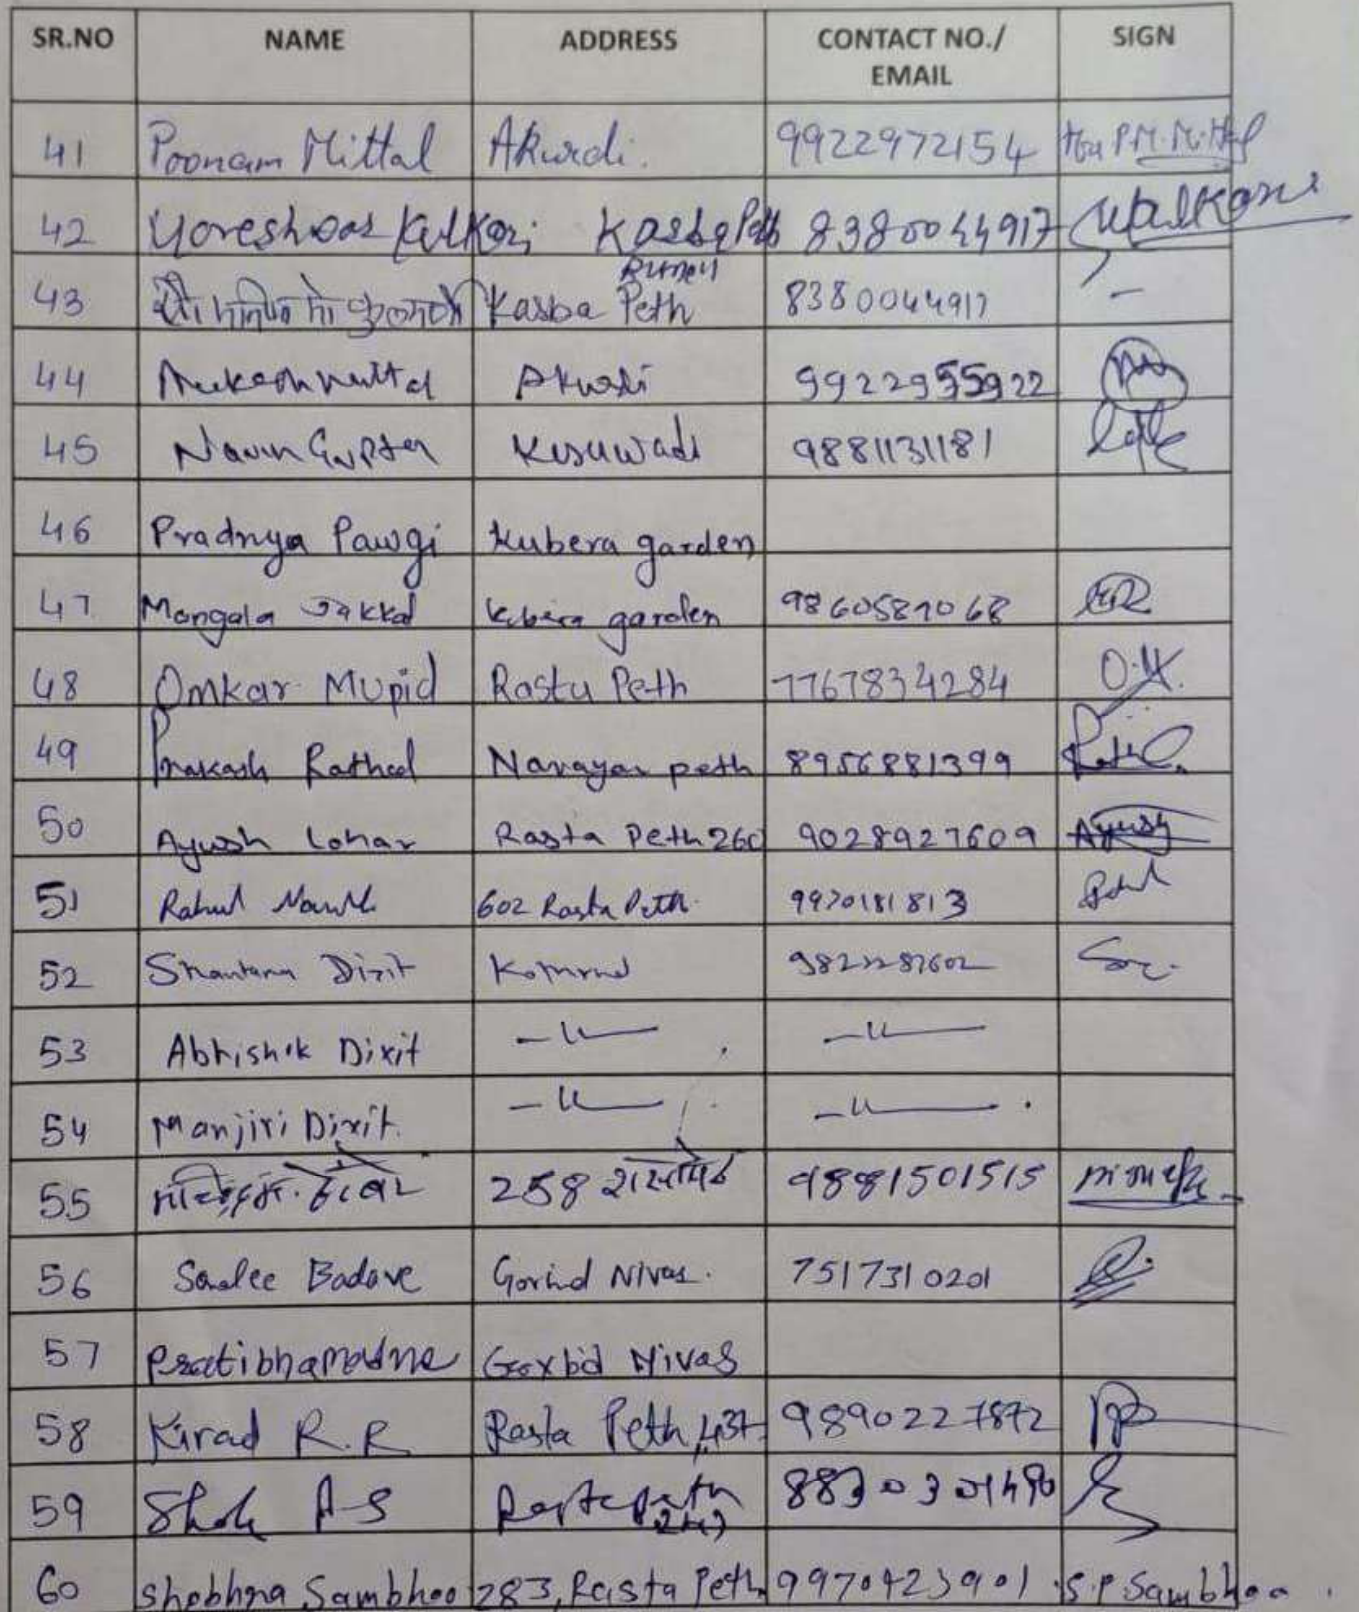 SR.NO NAME ADDRESS CONTACT NO./ EMAIL SIGN
41 Poonam Mittal Akurdi. 9922972154
42 Yoreshwar Kulkari Kasba Peth 8380044917
Pune 11
43 Kasba Peth 8380044917 –
44 Mukesh Mittal Akurdi 9922955922
45 Navin Gupta 9881131181
46 Pradnya Pawgi Kubera garden
47 Mangala Jakkal Kubera garden 9860587068
48 Omkar Mupid Rasta Peth 7767834284 O.M.
49 Prakash Rathod Narayan peth 8956881399
50 Ayush Lohar Rasta Peth 260 9028927609 Ayush
51 Rahul 602 Rasta Peth. 9970181813
52 Shantanu Dixit Kothrud
53 Abhishek Dixit –〃— –〃—
54 Manjiri Dixit. –〃— –〃—
55 258 रास्तापेठ 9881501515
56 Sonalee Badave Govind Nivas. 7517310201
57 Pratibha Govbid Nivas
58 Kirad R.R Rasta Peth, 437 9890227872
59 Rasta peth
60 Shobhna Sambhoo 283, Rasta Peth 9970423901 S.P. Sambhoo